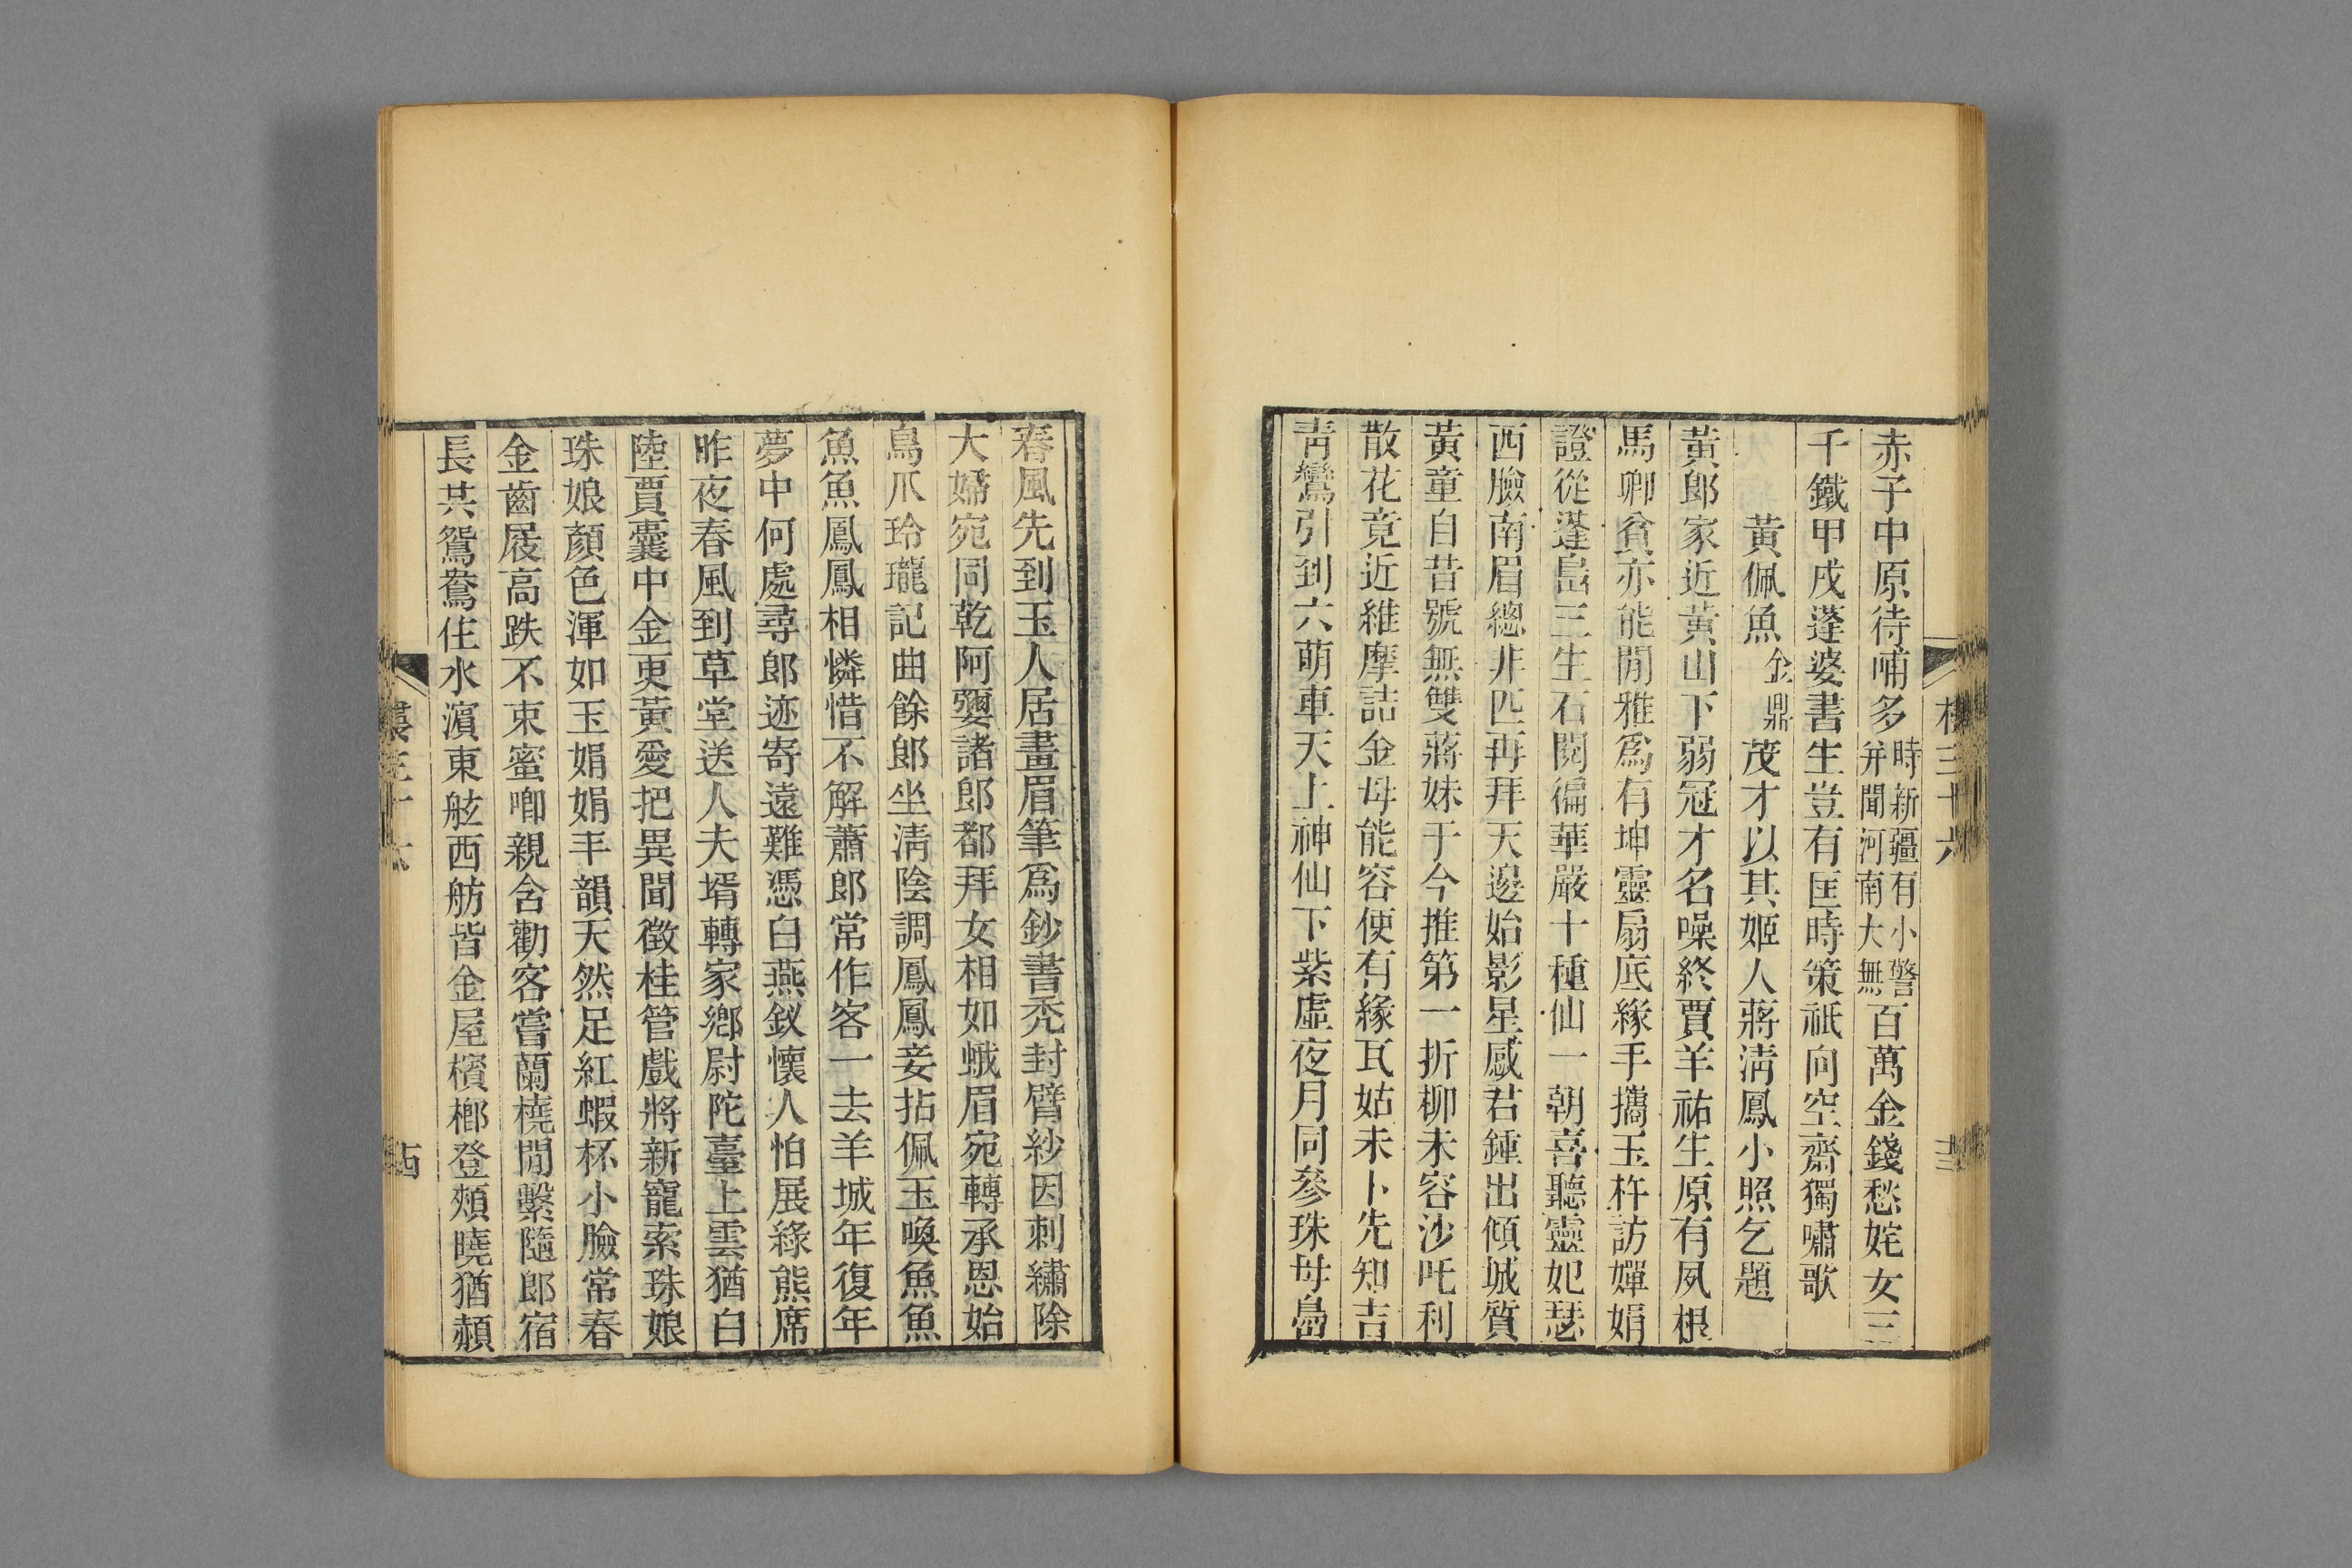 赤子中原待哺多時新疆有小警并聞河南大無百萬金錢愁姹女三
千鐵甲戍蓬婆書生豈有匡時策祇向空齋獨嘯歌
黃佩魚金鼎茂才以其姬人蔣淸鳳小照乞題
黃郎家近黃山下弱冠才名噪終賈羊祐生原有夙根
馬卿貧亦能閒雅爲有坤靈扇底緣手攜玉杵訪嬋娟
證從蓬島三生石閱徧華嚴十種仙一朝喜聽靈妃瑟
西臉南眉總非匹再拜天邊始影星感君鍾出傾城質
黃童自昔號無雙蔣妹于今推第一折柳未容沙吒利
散花竟近維摩詰金母能容便有緣瓦姑未卜先知吉
靑鸞引到六萌車天上神仙下紫虛夜月同參珠母島
春風先到玉人居畫眉筆爲鈔書禿封臂紗因刺繡除
大婦宛同乾阿㜲諸郎都拜女相如蛾眉宛轉承恩始
鳥爪玲瓏記曲餘郎坐淸陰調鳳鳳妾拈佩玉喚魚魚
魚魚鳳鳳相憐惜不解蕭郎常作客一去羊城年復年
夢中何處尋郎迹寄遠難憑白燕釵懷人怕展綠熊席
昨夜春風到草堂送人夫壻轉家鄕尉陀臺上雲猶白
陸賈囊中金更黃愛把異聞徵桂管戲將新寵索珠娘
珠娘顏色渾如玉娟娟丰韻天然足紅蝦杯小臉常春
金齒屐高趺不束蜜喞親含勸客嘗蘭橈閒繫隨郎宿
長共鴛鴦住水濱東舷西舫皆金屋檳榔登頰曉猶赬
樓三十六